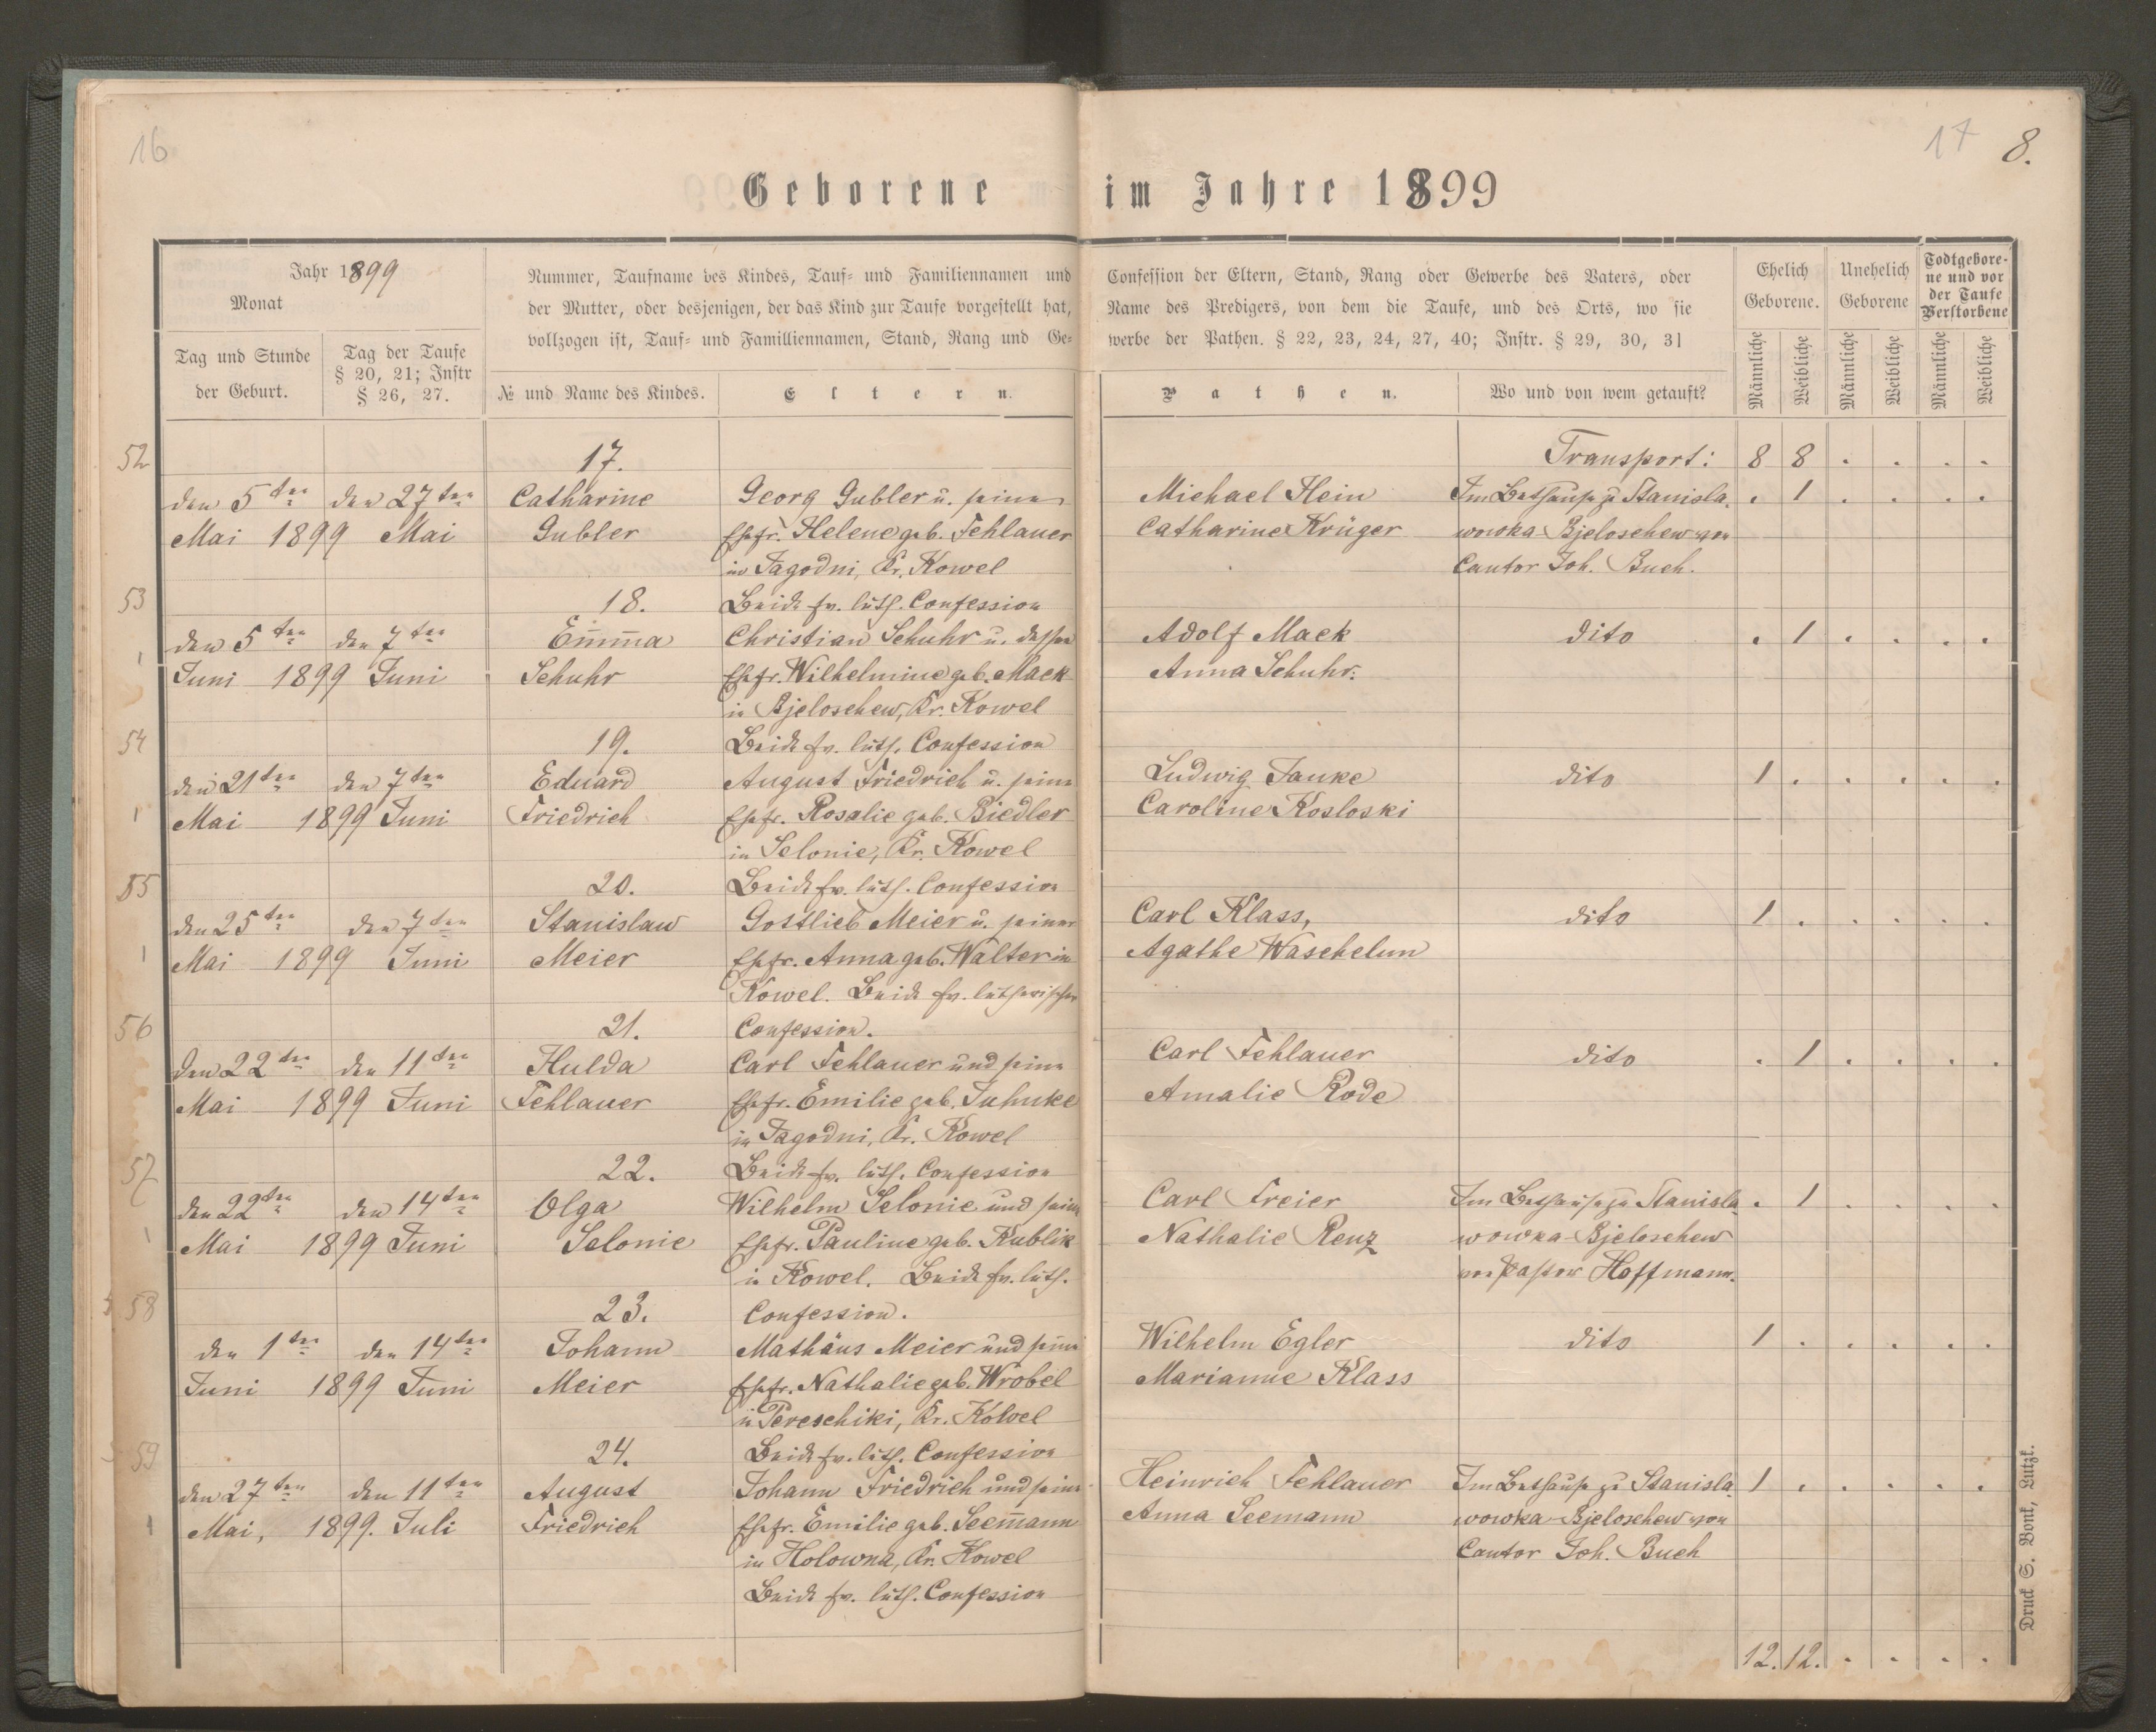 16
17 8.
Geborene im Jahre 1899
Jahr 1899
Monat
Tag und Stunde
der Geburt.
Tag der Taufe
§ 20, 21; Instr
§ 26, 27.
Nummer, Taufname des Kindes, Tauf- und Familiennamen und
der Mutter, oder desjenigen, der das Kind zur Taufe vorgestellt hat,
vollzogen ist, Tauf- und Familliennamen, Stand, Rang und Ge-
№ und Name des Kindes.
Eltern.
Confession der Eltern, Stand, Rang oder Gewerbe des Vaters, oder
Name des Predigers, von dem die Taufe, und des Orts, wo sie
werbe der Pathen. § 22, 23, 24, 27, 40; Instr. § 29, 30, 31
Pathen.
Wo und von wem getauft?
Ehelich
Geborene.
Unehelich
Geborene
Todtgebore-
ne und vor
der Taufe
Verstorbene
Männliche
Weibliche
Männliche
Weibliche
Männliche
Weibliche
Transport: 8 8 . . . .
52
17.
den 5ten den 27ten Catharine Georg Gubler u. seine Michael Hein Im Bethause zu Stanisla- . 1 . . . .
Mai 1899 Mai Gubler Ehefr. Helene geb. Fehlauer Catharine Krüger wowka-Bjeloschew von
in Jagodni, Kr. Kowel Cantor Joh. Buch.
53
18. Beide ev. luth. Confession
den 5ten den 7ten Emma Christian Schuhr u. dessen Adolf Mack dito . 1 . . . .
Juni 1899 Juni Schuhr Ehefr. Wilhelmine geb. Mack Anna Schuhr.
in Bjeloschew, Kr. Kowel
54
19. Beide ev. luth. Confession
den 21ten den 7ten Eduard August Friedrich u. seine Ludwig Janke dito 1 . . . . .
Mai 1899 Juni Friedrich Ehefr. Rosalie geb. Biedler Caroline Kosloski
in Selonie, Kr. Kowel
55
20. Beide ev. luth. Confession
den 25ten den 7ten Stanislaw Gottlieb Meier u. seiner Carl Klass, dito 1 . . . . .
Mai 1899 Juni Meier Ehefr. Anna geb. Walter in Agathe Waschelun
Kowel. Beide ev. lutherischer
56
21. Confession.
den 22ten den 11ten Hulda Carl Fehlauer und seine Carl Fehlauer dito . 1 . . . .
Mai 1899 Juni Fehlauer Ehefr. Emilie geb. Juhnke Amalie Rode
in Jagodni, Kr. Kowel
57
22. Beide ev. luth. Confession
den 22ten den 14ten Olga Wilhelm Selonie und seine Carl Freier Im Bethause zu Stanisla- . 1 . . . .
Mai 1899 Juni Selonie Ehefr. Pauline geb. Kublik Nathalie Renz wowka-Bjeloschew
in Kowel. Beide ev. luth. von Pastor Hoffmann.
58
23. Confession.
den 1ten den 14ten Johann Mathäus Meier und seine Wilhelm Egler dito 1 . . . . .
Juni 1899 Juni Meier Ehefr. Nathalie geb. Wrobel Marianne Klass
in Pereschiki, Kr. Kowel
59
24. Beide ev. luth. Confession
den 27ten den 11ten August Johann Friedrich und seine Heinrich Fehlauer Im Bethause zu Stanisla- 1 . . . . .
Mai, 1899. Juli Friedrich Ehefr. Emilie geb. Seemann Anna Seemann wowka-Bjeloschew von
in Holowna, Kr. Kowel Cantor Joh. Buch
Beide ev. luth. Confession
12. 12. . . . .
Druck S. Bonk, Lutzk.